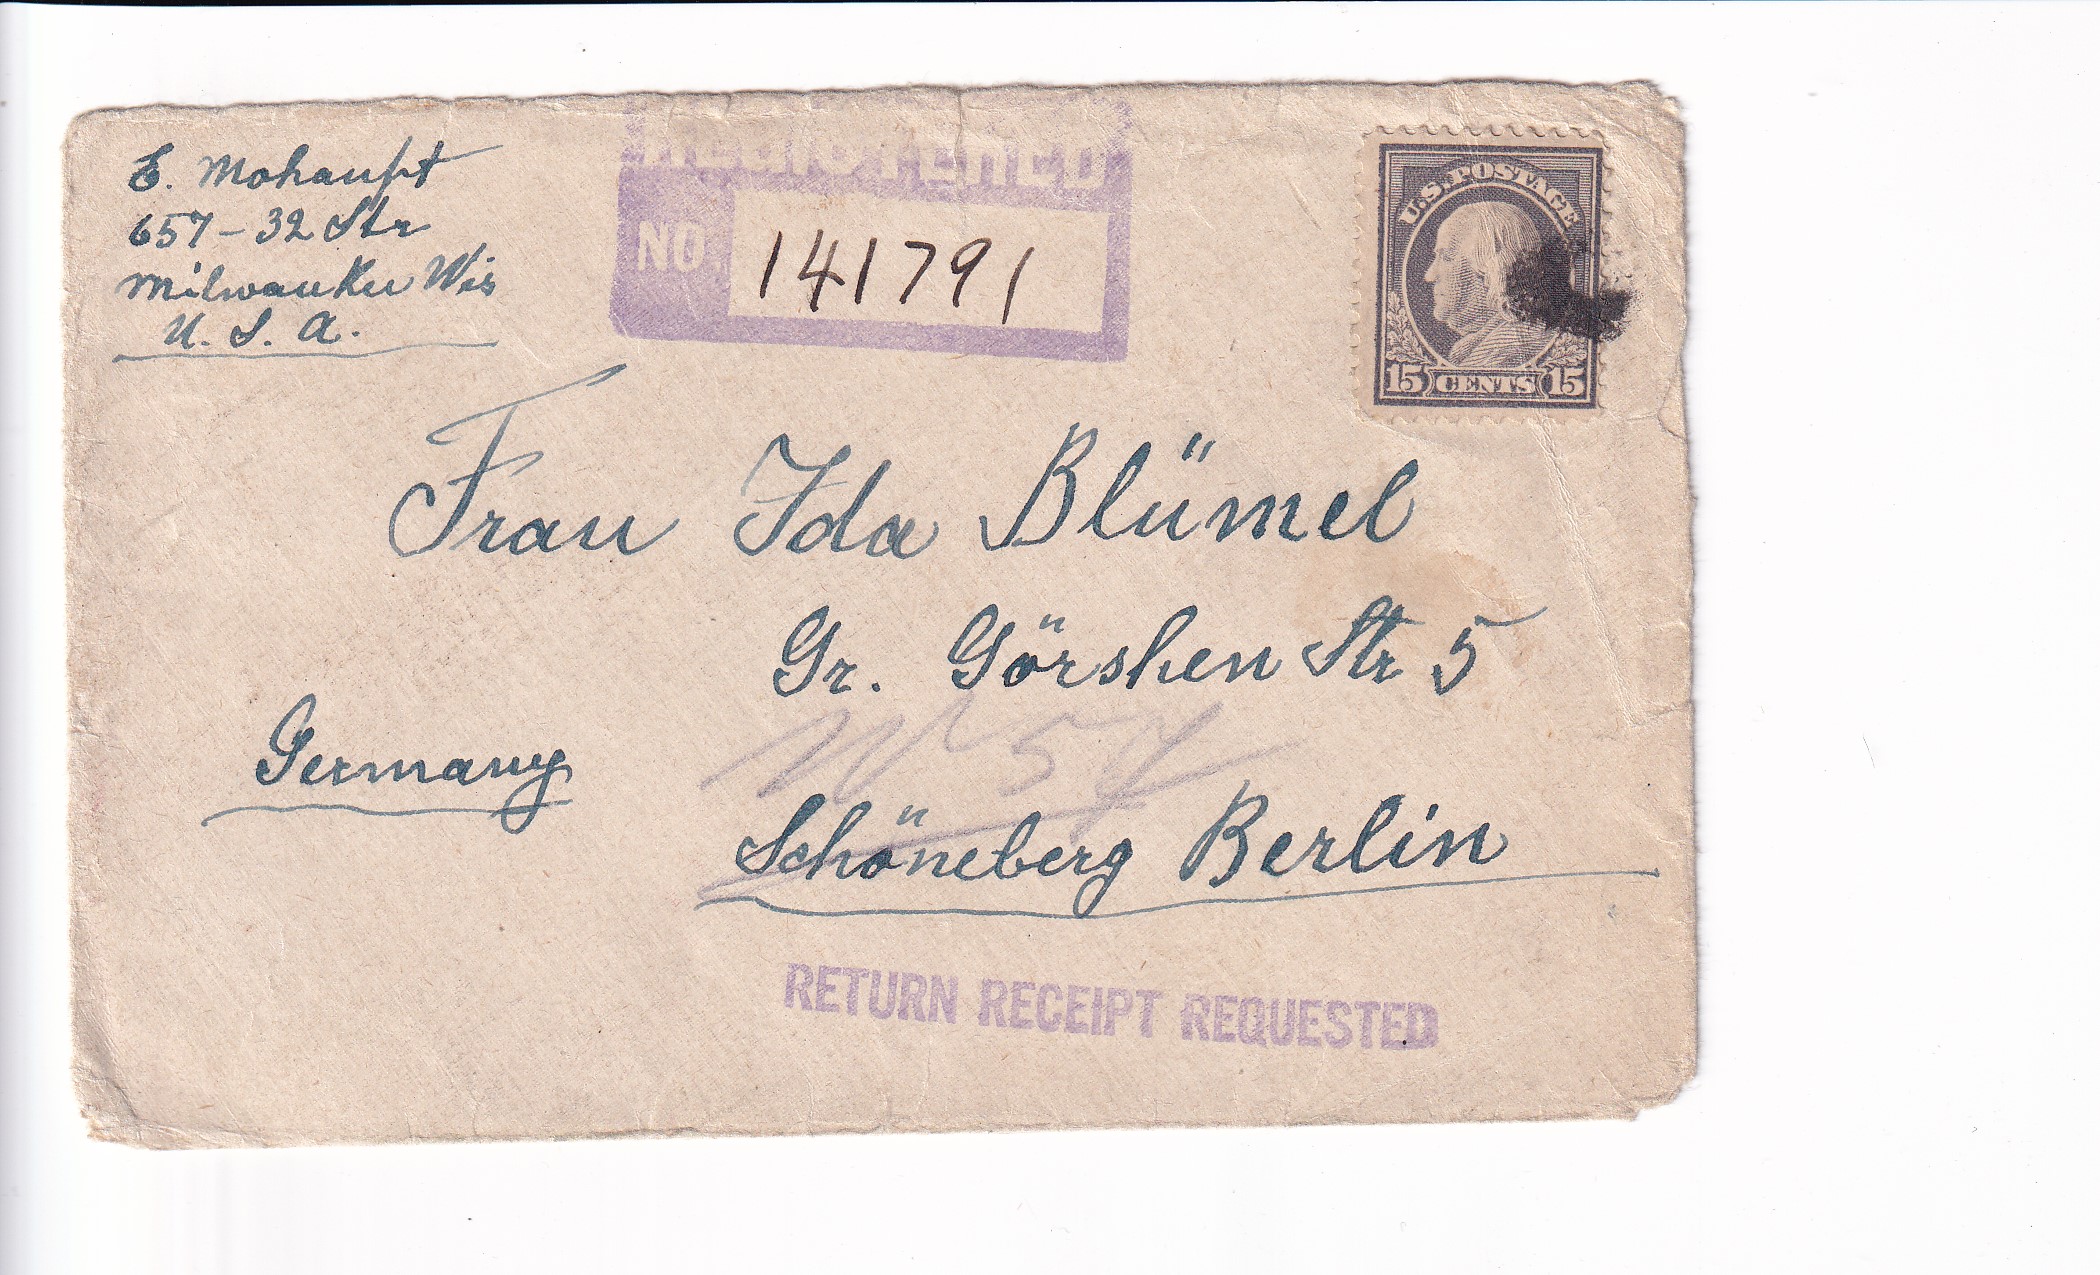 E. Mohaupt
657 - 32 Str
Milwaukee Wis
U. S. A.
REGISTERED
NO. 141791
U.S. POSTAGE
15 CENTS 15
Frau Ida Blümel
Gr. Görshen Str 5
W 57
Germany
Schöneberg Berlin
RETURN RECEIPT REQUESTED